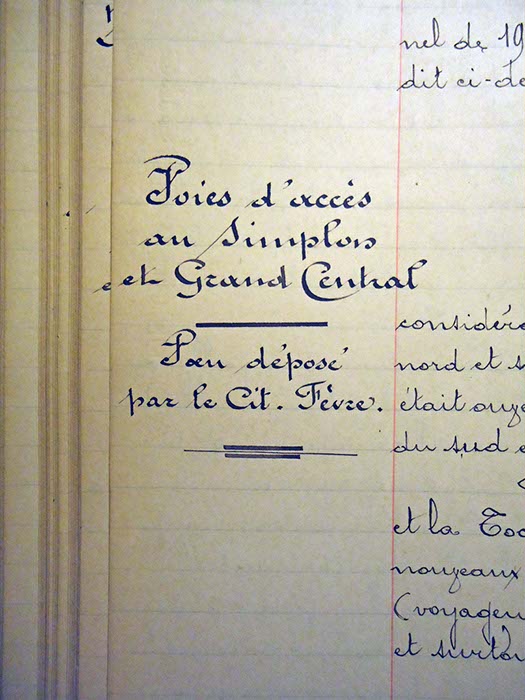 nel de 19
dit ci-de
Voies d'accès
au Simplon
et Grand Central
Vœu déposé
par le Cit. Fèvre.
considéra
nord et s
était ouve
du sud e
et la Toc
nouveaux
(voyageu
et surtou